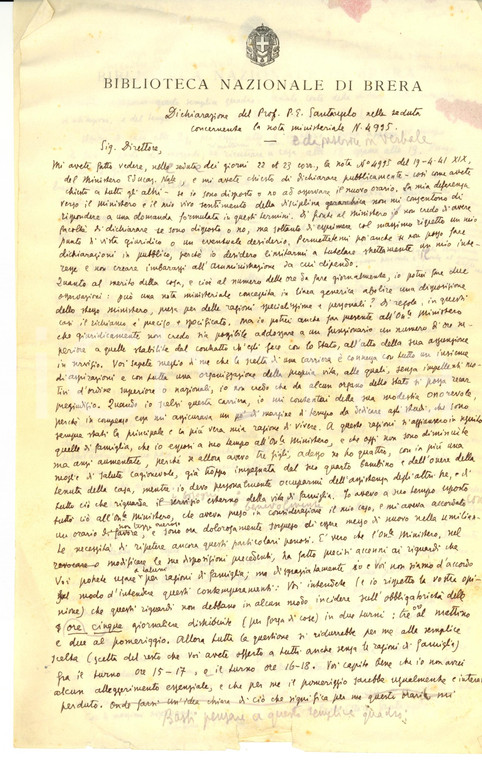 BIBLIOTECA NAZIONALE DI BRERA
Dichiarazione del Prof. P. E. Santangelo nella seduta
concernente la nota ministeriale N. 4995.
Sig. Direttore,
Mi avete fatto vedere, nelle sedute dei giorni 22 et 23 corr., la nota Nº 4995 del 19-4-41 XIX,
del Ministero Educaz. Naz., e mi avete chiesto di dichiarare pubblicamente - così come avete
chiesto a tutti gli altri - se io sono disposto o no ad osservare il nuovo orario. La mia deferenza
verso il ministero e il mio vivo sentimento della disciplina gerarchica non mi consentono di
rispondere a una domanda formulata in questi termini. Di fronte al ministero io non credo di avere
facoltà di dichiarare se sono disposto o no, ma soltanto di esprimere col massimo rispetto un mio
punto di vista giuridico o un eventuale desiderio. Permettetemi poi anche se non posso fare
dichiarazioni in pubblico, perchè io desidero limitarmi a tutelare strettamente un mio inte-
resse e non creare imbarazzi all'Amministrazione da cui dipendo.
Quanto al merito della cosa, e cioè al numero delle ore da fare giornalmente, io potrei fare due
osservazioni: può una nota ministeriale concepita in linea generica abolire una disposizione
dello stesso ministero, presa per delle ragioni specialissime e personali? Di regola, in questi
casi il richiamo è preciso e specificato. Ma io potrei anche far presente all'On. Ministero
che giuridicamente non credo sia possibile addossare a un funzionario un numero di ore su-
periore a quelle stabilite dal contratto ch'egli fece con lo Stato, all'atto della sua assunzione
in servizio. Voi sapete meglio di me che la scelta di una carriera è connessa con tutto un insieme
di aspirazioni e con tutta una organizzazione della propria vita, alle quali, senza impellenti mo-
tivi d'ordine superiore o nazionale, io non credo che da alcun organo dello Stato si possa recar
pregiudizio. Quando io scelsi questa carriera, io mi contentai della sua modestia onorevole,
perchè in compenso essa mi assicurava un pò di margine di tempo da dedicare agli studi, che sono
sempre stati la principale e la più vera mia ragione di vivere. A queste ragioni si aggiunsero in seguito
quelle di famiglia, che io esposi a suo tempo all'On. Ministero, e che oggi non sono diminuite
ma anzi aumentate, perchè se allora avevo tre figli, adesso ne ho quattro, con in più una
moglie di salute cagionevole, già troppo impegnata dal suo quarto bambino e dall'onere della
tenuta della casa, mentre io devo personalmente occuparmi dell'assistenza degli altri tre, e di
tutto ciò che riguarda il servizio esterno della vita di famiglia. Io avevo a suo tempo esposto
tutto ciò all'On. Ministero, che aveva preso in considerazione il mio caso, e mi aveva accordato
un orario di favore, e sono ora dolorosamente sorpreso di esser messo di nuovo nella umilian-
te necessità di ripetere ancora questi particolari penosi. È vero che l'On. Ministero, nel
revocare o modificare le sue disposizioni precedenti, ha fatto precisi accenni ai riguardi che
Voi potete usare per ragioni di famiglia; ma disgraziatamente io e Voi non siamo d'accordo
sul modo d'intendere questi contemperamenti. Voi intendete (e io rispetto la vostra opi-
nione) che questi riguardi non debbano in alcun modo incidere sull'obbligatorietà delle
ore cinque giornaliere distribuite (per forza di cose) in due turni: tre al mattino
e due al pomeriggio. Allora tutta la questione si ridurrebbe per me alla semplice
scelta (scelta del resto che voi avete offerto a tutti anche senza le ragioni di famiglia)
fra il turno ore 15-17, e il turno ore 16-18. Voi capite bene che io non avrei
alcun alleggerimento essenziale, e che per me il pomeriggio sarebbe ugualmente e intera-
perduto. Onde farsi un'idea chiara di ciò che significa per me questo orario
Basti pensare a questo semplice quadro: